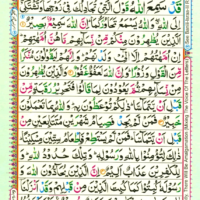 قَدْ سَمِعَ اللّٰهُ قَوْلَ الَّتِيْ تُجَادِلُكَ فِيْ زَوْجِهَا وَتَشْتَكِيْ
اِلَى اللّٰهِ وَاللّٰهُ يَسْمَعُ تَحَاوُرَكُمَا اِنَّ اللّٰهَ سَمِيْعٌ بَصِيْرٌ
اَلَّذِيْنَ يُظٰهِرُوْنَ مِنْكُمْ مِّنْ نِّسَآئِهِمْ مَّا هُنَّ اُمَّهٰتِهِمْ اِنْ
اُمَّهٰتُهُمْ اِلَّا الّٰٓئِيْ وَلَدْنَهُمْ وَاِنَّهُمْ لَيَقُوْلُوْنَ مُنْكَرًا
مِّنَ الْقَوْلِ وَزُوْرًا وَاِنَّ اللّٰهَ لَعَفُوٌّ غَفُوْرٌ وَالَّذِيْنَ
يُظٰهِرُوْنَ مِنْ نِّسَآئِهِمْ ثُمَّ يَعُوْدُوْنَ لِمَا قَالُوْا فَتَحْرِيْرُ رَقَبَةٍ مِّنْ
قَبْلِ اَنْ يَّتَمَآسَّا ذٰلِكُمْ تُوْعَظُوْنَ بِهٖ وَاللّٰهُ بِمَا تَعْمَلُوْنَ
خَبِيْرٌ فَمَنْ لَّمْ يَجِدْ فَصِيَامُ شَهْرَيْنِ مُتَتَابِعَيْنِ مِنْ
قَبْلِ اَنْ يَّتَمَآسَّا فَمَنْ لَّمْ يَسْتَطِعْ فَاِطْعَامُ سِتِّيْنَ مِسْكِيْنًا
ذٰلِكَ لِتُؤْمِنُوْا بِاللّٰهِ وَرَسُوْلِهٖ وَتِلْكَ حُدُوْدُ اللّٰهِ
وَلِلْكٰفِرِيْنَ عَذَابٌ اَلِيْمٌ اِنَّ الَّذِيْنَ يُحَآدُّوْنَ اللّٰهَ
وَرَسُوْلَهٗ كُبِتُوْا كَمَا كُبِتَ الَّذِيْنَ مِنْ قَبْلِهِمْ وَقَدْ اَنْزَلْنَا